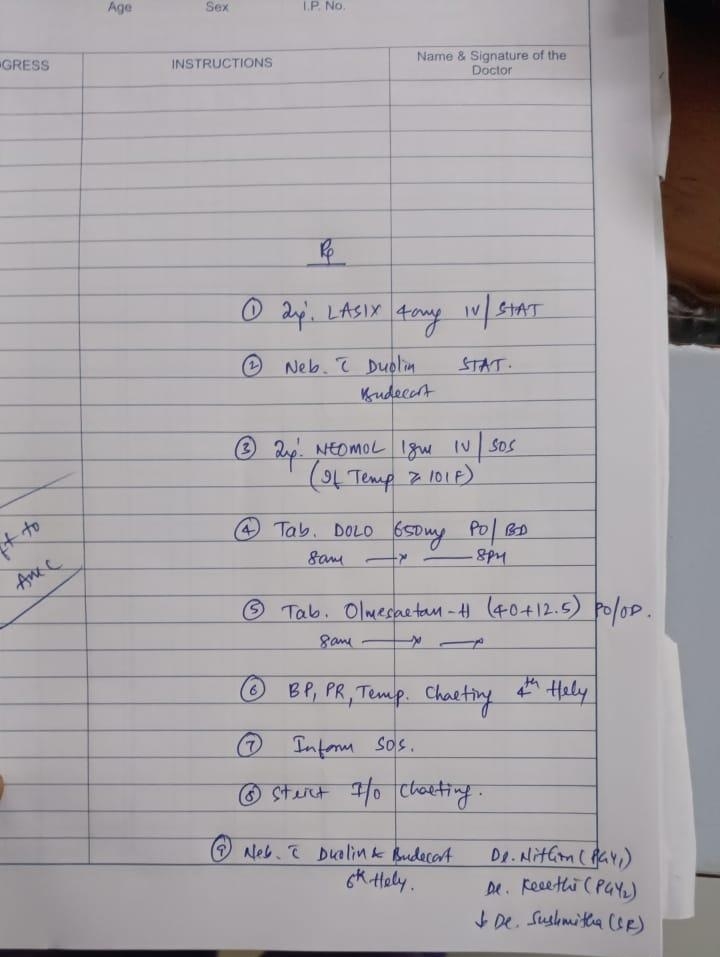 Age Sex I.P. No.
GRESS INSTRUCTIONS Name & Signature of the
Doctor
Rp
① Inj. LASIX 40mg IV/STAT
② Neb. c̄ Duolin STAT.
Budecort
③ Inj. NEOMOL 1gm IV/SOS
(If Temp ≥ 101F)
④ Tab. DOLO 650mg PO/BD
8am —x —8PM
⑤ Tab. Olmesartan-H (40+12.5) PO/OD.
8am —x —x
⑥ BP, PR, Temp. Charting 4th Hrly
⑦ Inform SOS.
⑧ Strict I/O Charting.
⑨ Neb. c̄ Duolin & Budecort Dr. Nithin (PGY1)
6th Hrly. Dr. Keerthi (PGY2)
Dr. Sushmitha (SR)
to